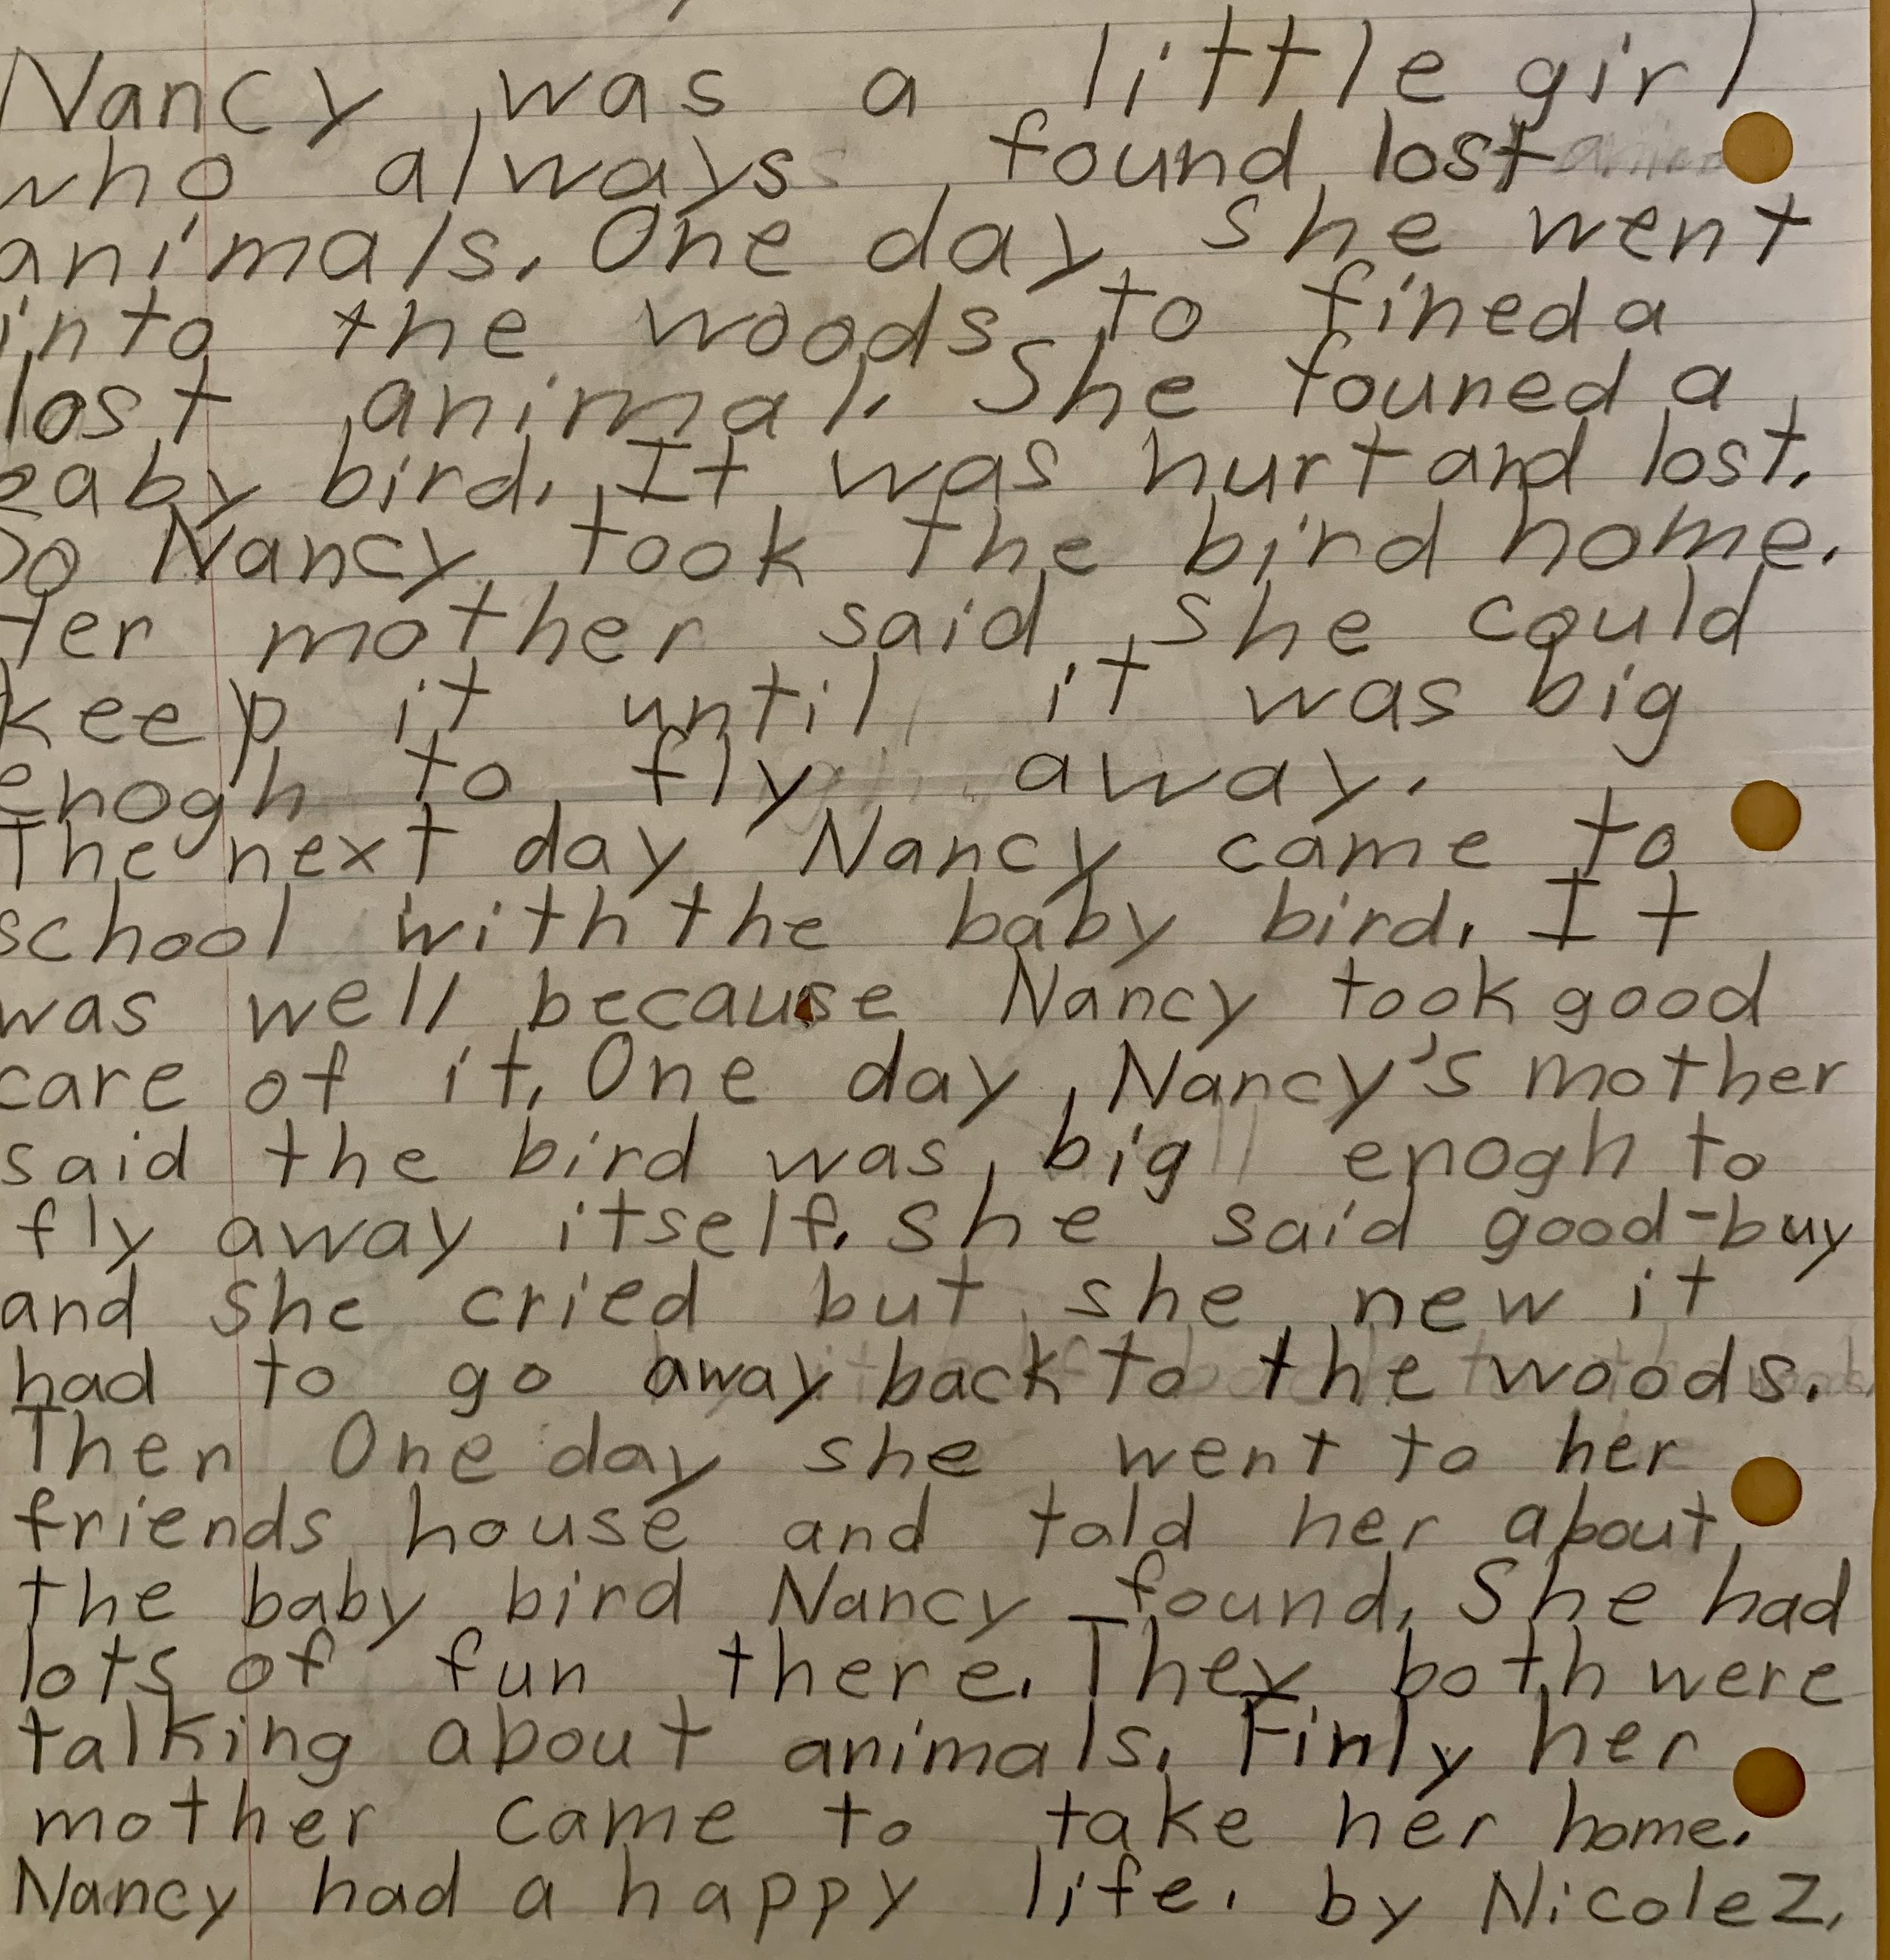 Nancy was a little girl
who always found lost
animals. One day she went
into the woods to fined a
lost animal. She founed a
baby bird. It was hurt and lost.
So Nancy took the bird home.
Her mother said she could
keep it until it was big
enogh to fly away.
The next day Nancy came to
school with the baby bird. It
was well because Nancy took good
care of it. One day Nancy's mother
said the bird was big enogh to
fly away itself. she said good-buy
and she cried but she new it
had to go away back to the woods.
Then One day she went to her
friends house and told her about
the baby bird Nancy found. She had
lots of fun there. They both were
talking about animals. Finly her
mother came to take her home.
Nancy had a happy life. by Nicole Z.